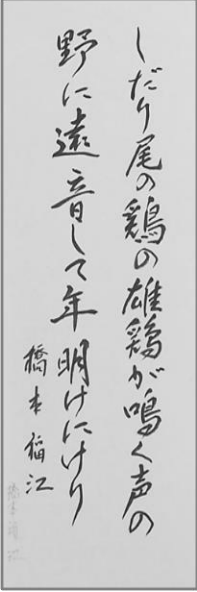 しだり尾の鶏の雄鶏が鳴く声の
野に遠音して年明けにけり
橋本稲江